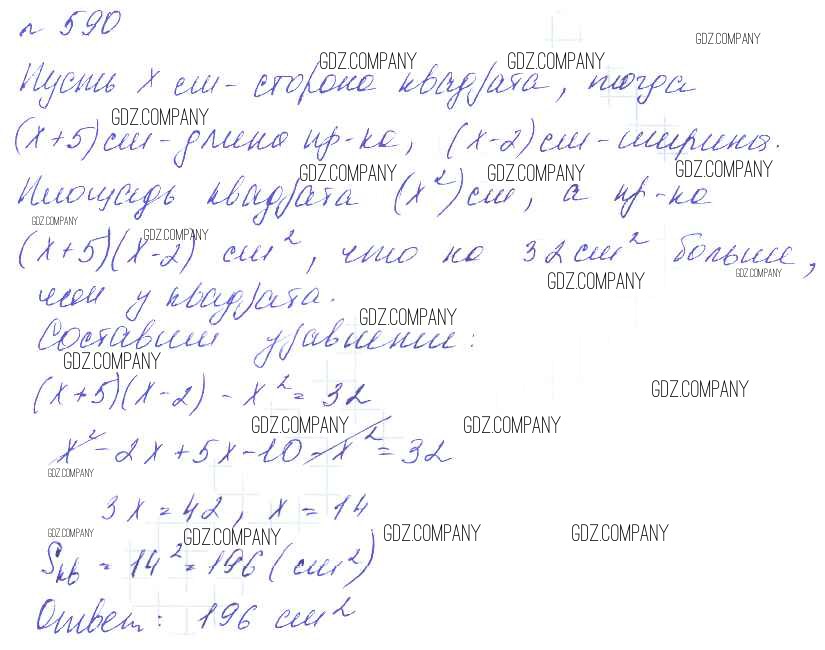 № 590
GDZ.COMPANY
GDZ.COMPANY GDZ.COMPANY
Пусть x см - сторона квадрата, тогда
GDZ.COMPANY
(x+5) см - длина пр-ка, (x-2) см - ширина.
GDZ.COMPANY GDZ.COMPANY GDZ.COMPANY
Площадь квадрата (x²) см, а пр-ка
GDZ.COMPANY GDZ.COMPANY
(x+5)(x-2) см², что на 32 см² больше,
GDZ.COMPANY GDZ.COMPANY
чем у квадрата.
GDZ.COMPANY
Составим уравнение:
GDZ.COMPANY
(x+5)(x-2) - x² = 32
GDZ.COMPANY
GDZ.COMPANY GDZ.COMPANY
x² - 2x + 5x - 10 - x² = 32
GDZ.COMPANY
3x = 42, x = 14
GDZ.COMPANY GDZ.COMPANY GDZ.COMPANY GDZ.COMPANY
Sкв = 14² = 196 (см²)
Ответ: 196 см²